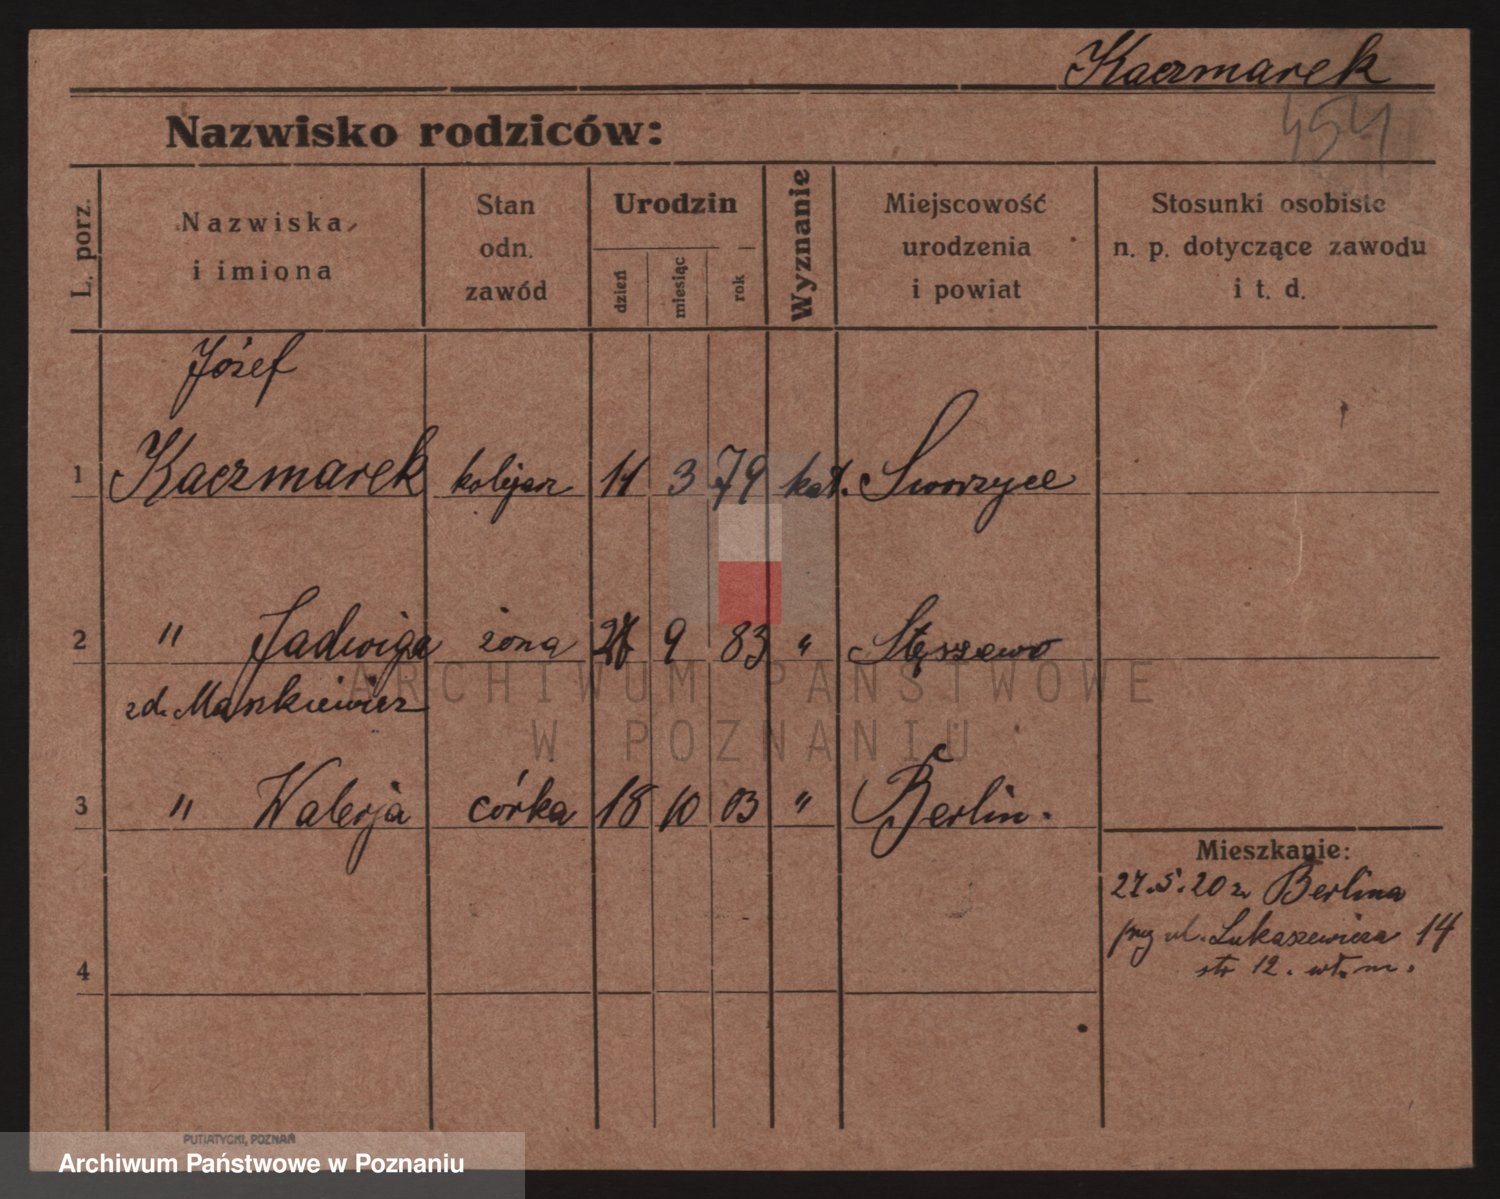 Kaczmarek
454
Nazwisko rodziców:
L. porz.
Nazwiska
i imiona
Stan
odn.
zawód
Urodzin
dzień
miesiąc
rok
Wyznanie
Miejscowość
urodzenia
i powiat
Stosunki osobiste
n. p. dotyczące zawodu
i t. d.
Józef
1 Kaczmarek kolejarz 11 3 79 kat. Sworzyce
2 " Jadwiga żona 9 83 " Stęszewo
zd. Maszkiewicz
3 " Walerja córka 18 10 03 " Berlin.
4
Mieszkanie:
27.5.20 z Berlina
przy ul. Łukaszewicza 14
str 12. wt. m.
ARCHIWUM PAŃSTWOWE
W POZNANIU
PUTIATYCKI, POZNAŃ
Archiwum Państwowe w Poznaniu